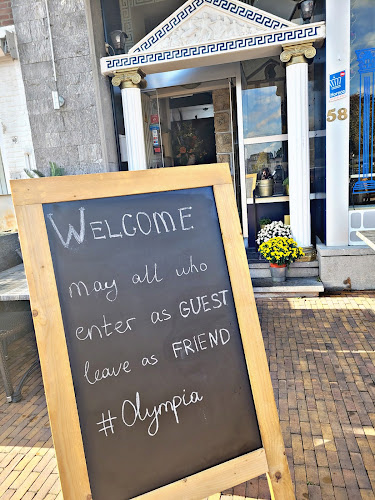 WELCOME
may all who
enter as GUEST
leave as FRIEND
#Olympia
58